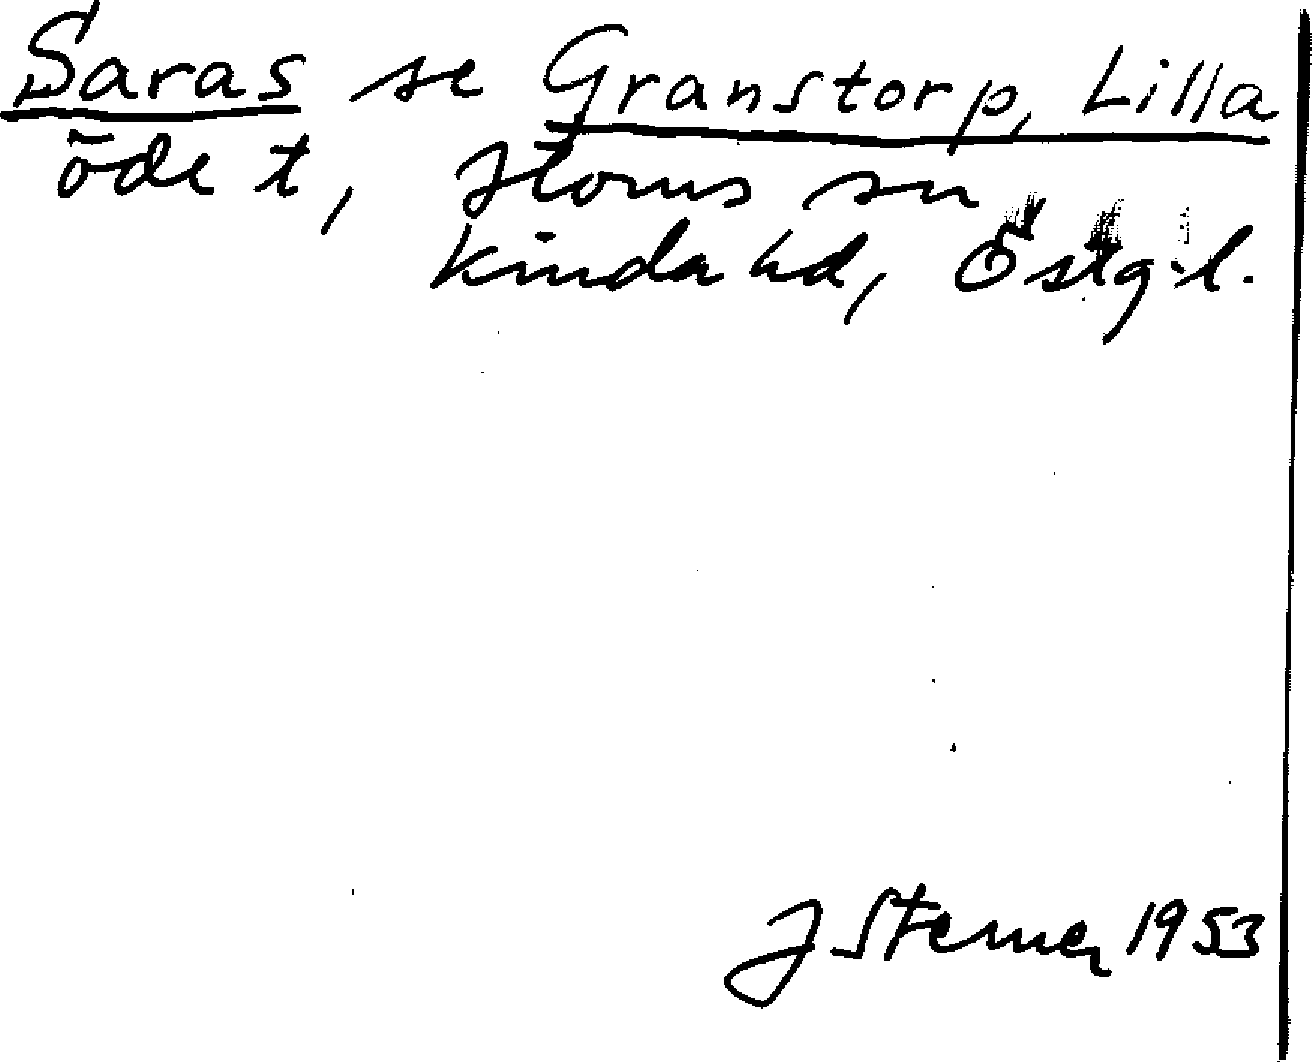 Saras se Granstorp, Lilla
öde t, Horns sn
Kinda hd, Östg.l.
J Sterner 1953